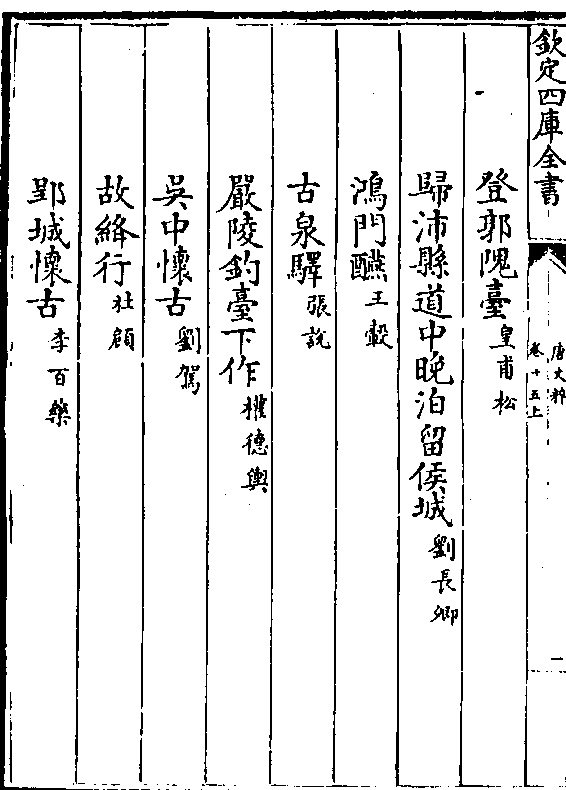 欽定四庫全書
唐文粹
卷十五上
一
登郭隗臺皇甫松
歸沛縣道中晚泊留侯城劉長卿
鴻門讌王轂
古泉驛張說
嚴陵釣臺下作權德輿
吳中懷古劉駕
故絳行杜顔
郢城懷古李百藥